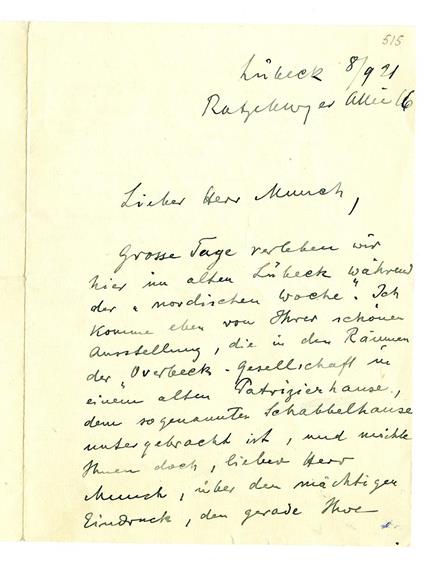 515
Lübeck 8/9 21
Ratzeburger Allee 16
Lieber Herr Munch,
Grosse Tage verleben wir
hier im alten Lübeck während
der „nordischen Woche“. Ich
komme eben von Ihrer schönen
Ausstellung, die in den Räumen
der „Overbeck-Gesellschaft in
einem alten Patrizierhause,
dem sogenannten Schabbelhause
untergebracht ist, und möchte
Ihnen doch, lieber Herr
Munch, über den mächtigen
Eindruck, den gerade Ihre